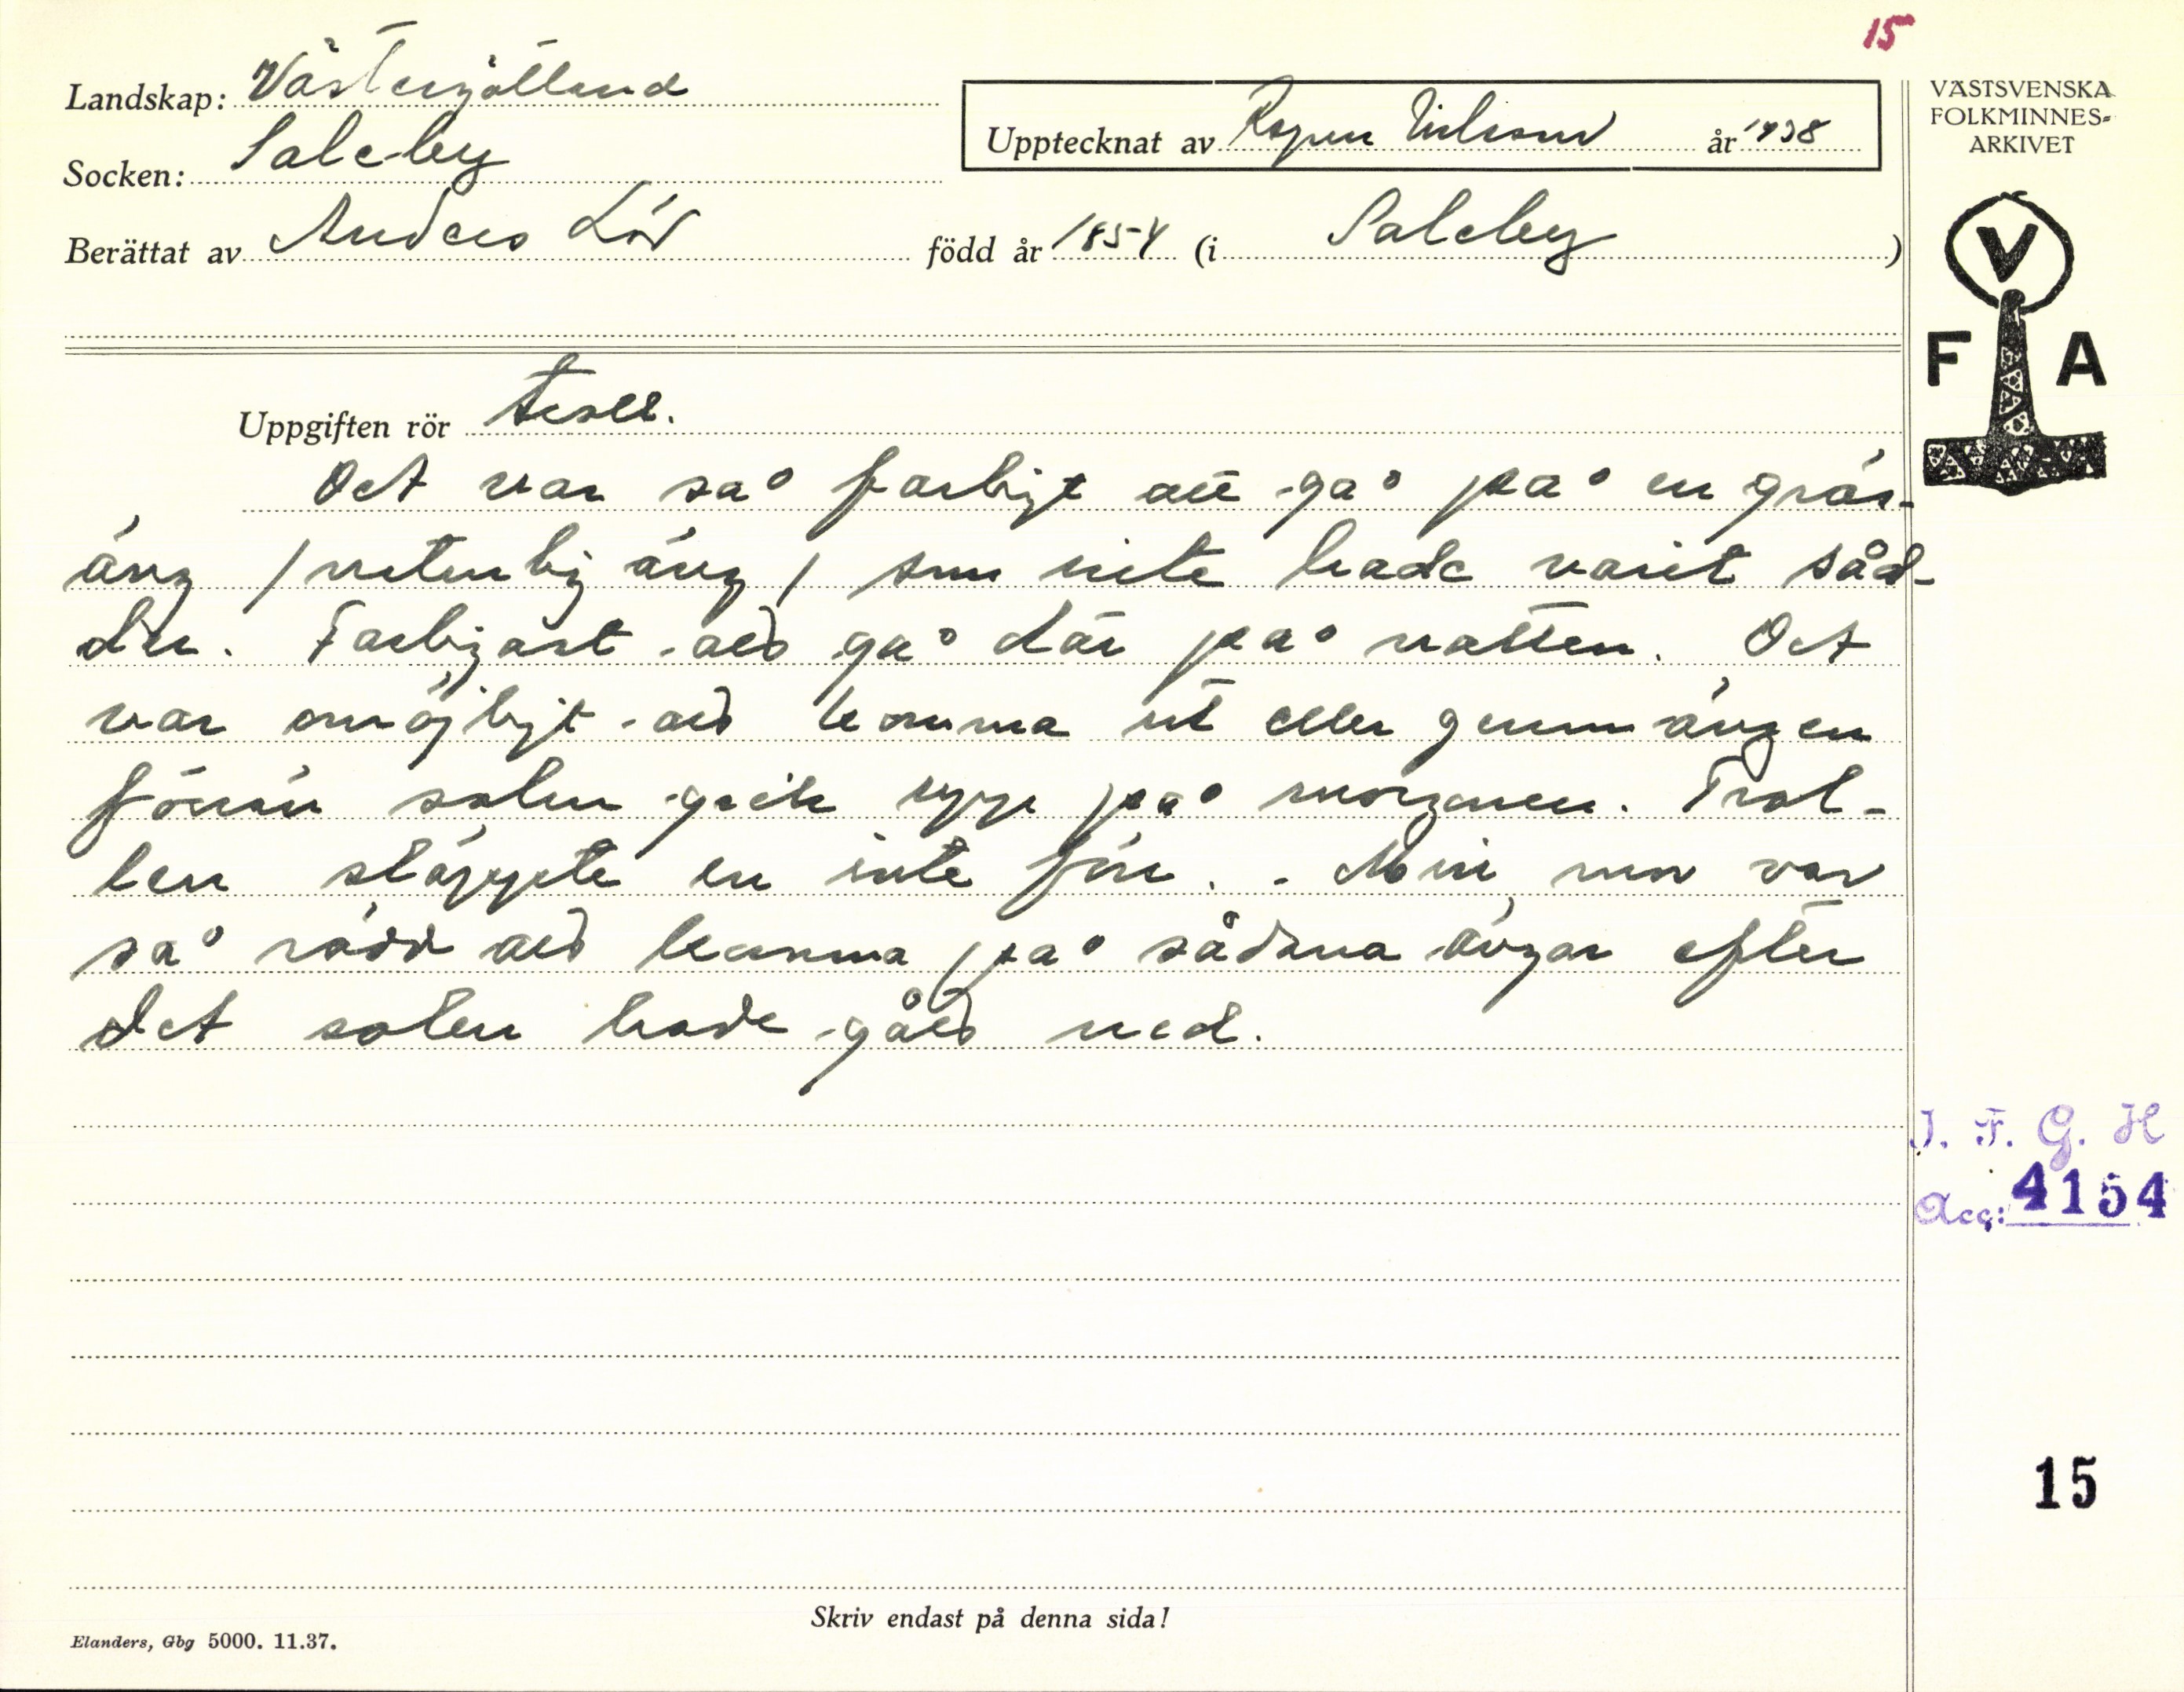 15
Landskap: Västergötland
Socken: Saleby
Berättat av Anders Löv född år 1854 (i Saleby)
Upptecknat av Ragnar Nilsson år 1938
VÄSTSVENSKA
FOLKMINNES-
ARKIVET
V
F A
Uppgiften rör troll.
Det var så farligt att gå på en gräs-
äng / naturlig äng / som inte hade varit såd-
der. Farligast att gå där på natten. Det
var omöjligt att komma ut eller genom ängen
förrän solen gick upp på morgonen. Trol-
len släppte en inte förr. - Min mor var
så rädd att komma på sådana ängar efter
det solen hade gått ned.
I. F. G. H
Acc: 4154
15
Skriv endast på denna sida!
Elanders, Gbg 5000. 11.37.